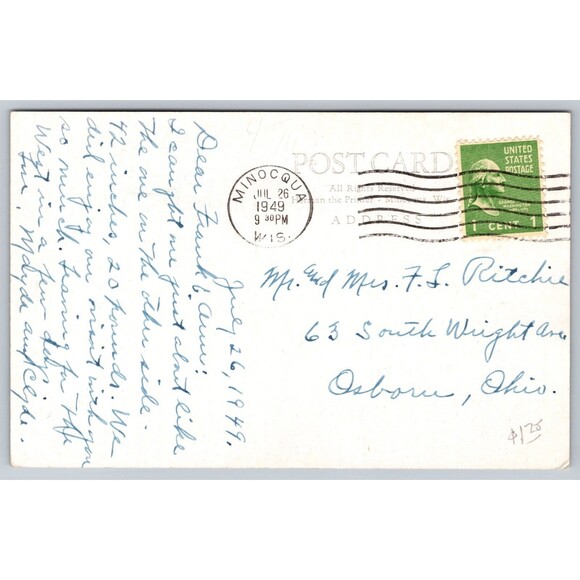 July 26, 1949.
Dear Frank & Ann:
I caught one just about like
the one on the other side.
42 inches, 20 pounds. We
did enjoy our visit with you
so much. Leaving for the
West in a few days.
and Clyde.
MINOCQUA
JUL 26
1949
9 30 PM
WIS.
POST CARD
All Rights Reserved
ADDRESS
UNITED
STATES
POSTAGE
1 CENT 1
Mr. and Mrs. F. L. Ritchie
63 South Wright Ave.
Osborn, Ohio.
$1.25